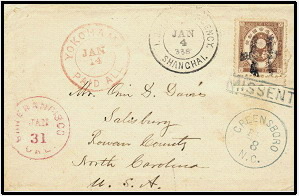 YOKOHAMA
JAN
14
PAID ALL
JAN
4
SHANGHAI
MISSENT
SAN FRANCISCO
JAN
31
CAL.
GREENSBORO
8
N.C.
Mr. Orin D. Davis
Salisbury
Rowan County
North Carolina
U.S.A.